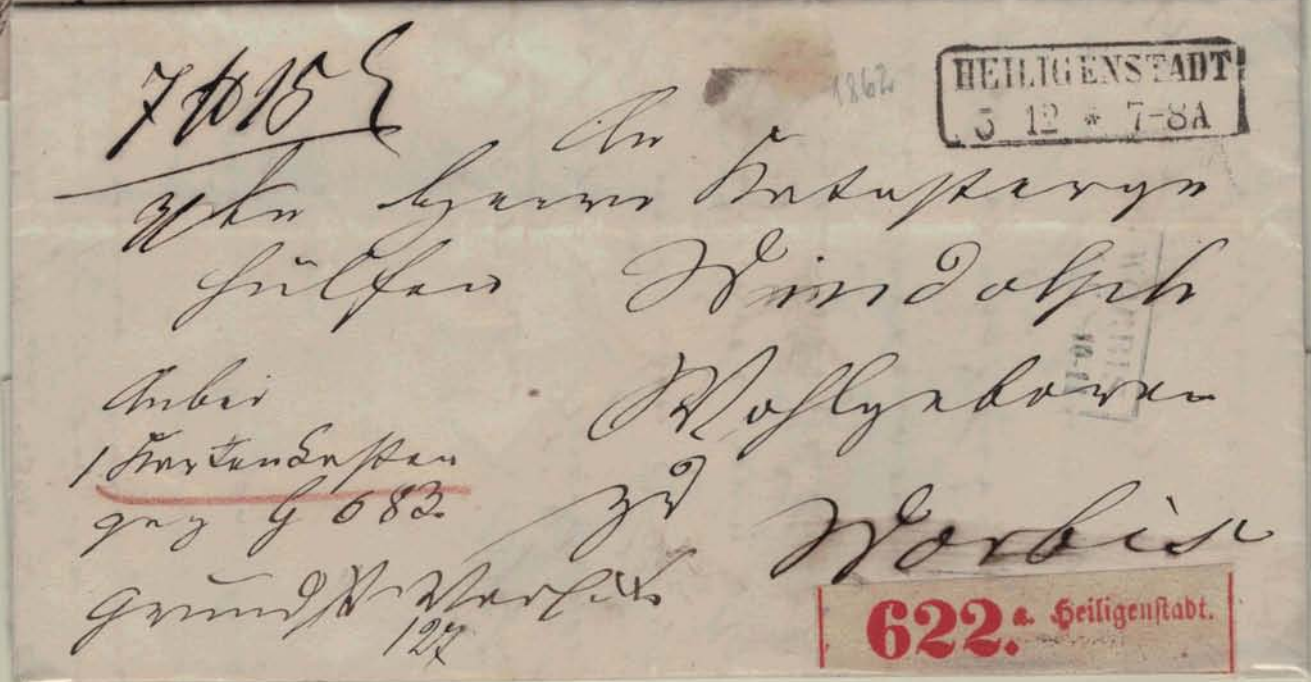 7 ℔ 15
1862
HEILIGENSTADT
5 12 * 7-8A
An
den Herrn Katasterge
hülfen Windolph
Wohlgeboren
zu
Worbis
Anbei
1 Kartenkasten
gez G 683.
127
WORBIS
622. a. Heiligenstadt.